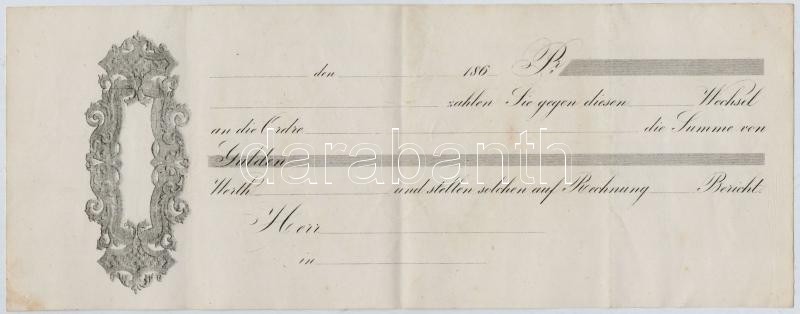 den 186 Pr.
zahlen Sie gegen diesen Wechsel
an die Ordre die Summe von
Gulden
Werth und stellen solchen auf Rechnung Bericht.
Herr
in
darabanth